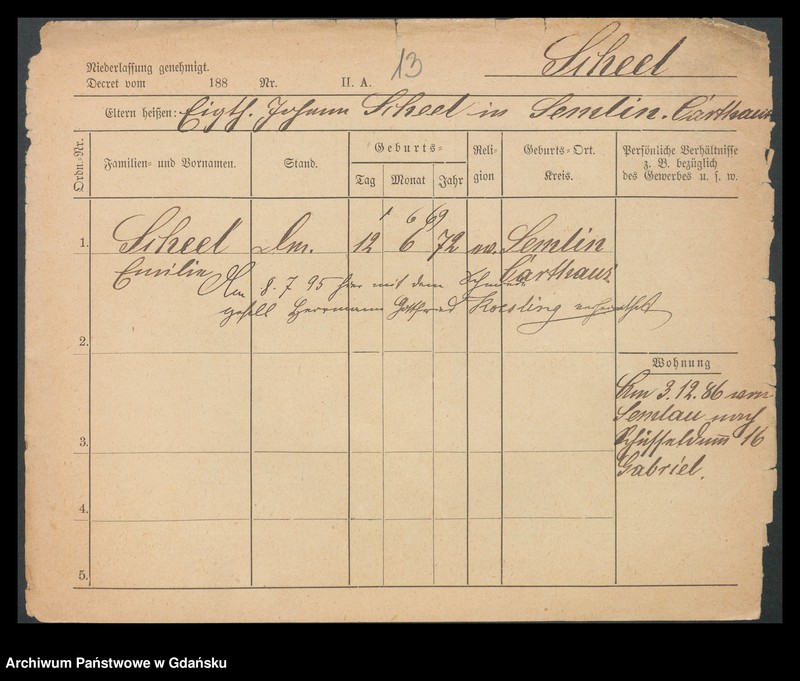 Niederlassung genehmigt.
Decret vom 188 Nr. II. A.
13
Scheel
Eltern heißen: Eigth. Johann Scheel in Semlin. Carthaus
Ordn.-Nr.
Familien- und Vornamen.
Stand.
Geburts-
Tag Monat Jahr
Religion
Geburts-Ort.
Kreis.
Persönliche Verhältnisse
z. B. bezüglich
des Gewerbes u. s. w.
1 6 69
1. Scheel 12 6 72 ev. Semlin
Emilie Carthaus
Am 8. 7 95 hier mit dem Schmiede
gesell Herrmann Gottfried Koesling verheirathet
2.
Wohnung
Am 3.12.86 von
Semlau nach
Schüsseldamm 16
Gabriel.
3.
4.
5.
Archiwum Państwowe w Gdańsku